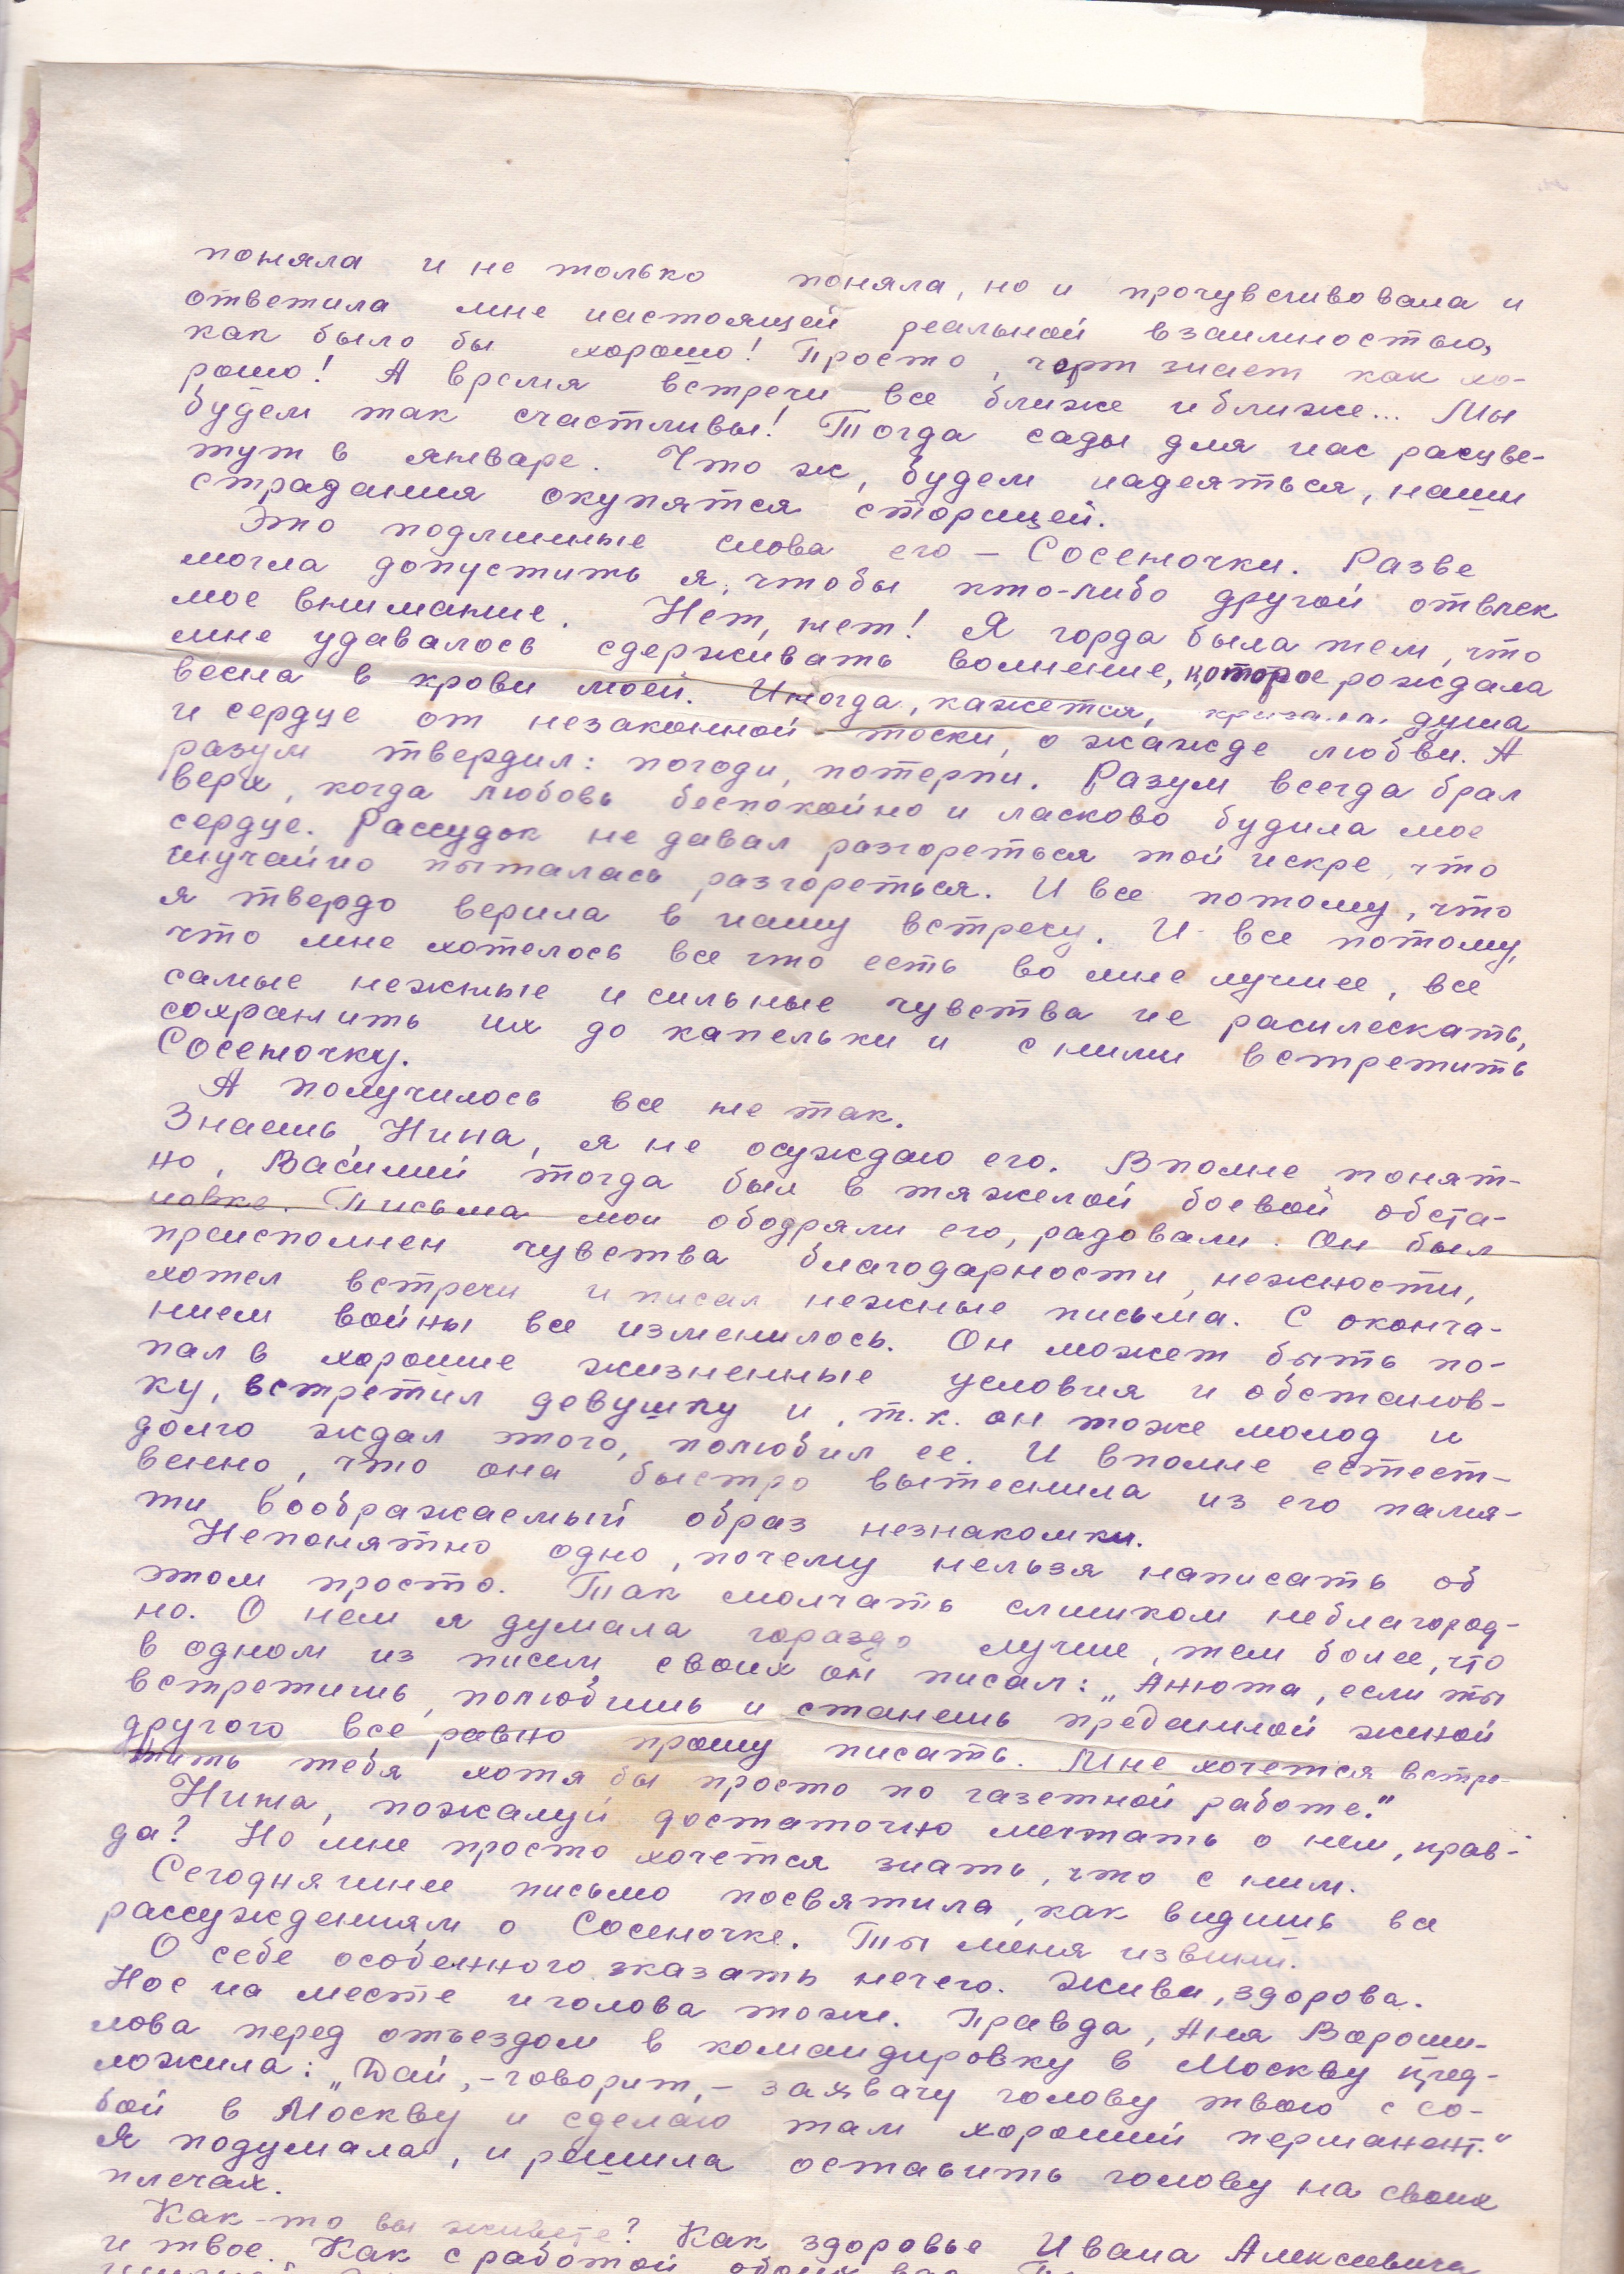 поняла и не только поняла, но и прочувствовала и
ответила мне настоящей реальной взаимностью,
как было бы хорошо! Просто, черт знает как хо-
рошо! А время встречи все ближе и ближе... Мы
будем так счастливы! Тогда сады для нас расцве-
тут в январе. Что ж, будем надеяться, наши
страдания окупятся сторицей.
Это подлинные слова его — Сосеночки. Разве
могла допустить я, чтобы кто-либо другой отвлек
мое внимание. Нет, нет! Я горда была тем, что
мне удавалось сдерживать волнение, которое рождала
весна в крови моей. Иногда, кажется, кричала душа
и сердце от незаконной тоски, о жажде любви. А
разум твердил: погоди, потерпи. Разум всегда брал
верх, когда любовь беспокойно и ласково будила мое
сердце. Рассудок не давал разгореться той искре, что
случайно пыталась разгореться. И все потому, что
я твердо верила в нашу встречу. И все потому,
что мне хотелось все что есть во мне лучшее, все
самые нежные и сильные чувства не расплескать,
сохранить их до капельки и с ними встретить
Сосеночку.
А получилось все не так.
Знаешь, Нина, я не осуждаю его. Вполне понят-
но, Василий тогда был в тяжелой боевой обста-
новке. Письма мои ободряли его, радовали. Он был
преисполнен чувства благодарности, нежности,
хотел встречи и писал нежные письма. С оконча-
нием войны все изменилось. Он может быть по-
пал в хорошие жизненные условия и обстанов-
ку, встретил девушку и, т.к. он тоже молод и
долго ждал этого, полюбил ее. И вполне естест-
венно, что она быстро вытеснила из его памя-
ти воображаемый образ незнакомки.
Непонятно одно, почему нельзя написать об
этом просто. Так молчать слишком неблагород-
но. О нем я думала гораздо лучше, тем более, что
в одном из писем своих он писал: „Анюта, если ты
встретишь, полюбишь и станешь преданной женой
другого все равно прошу писать. Мне хочется встре-
тить тебя хотя бы просто по газетной работе."
Нина, пожалуй достаточно мечтать о нем, прав-
да? Но мне просто хочется знать, что с ним.
Сегодняшнее письмо посвятила, как видишь все
рассуждениям о Сосеночке. Ты меня извини.
О себе особенного сказать нечего. Жива, здорова.
Нос на месте и голова тоже. Правда, Аня Вороши-
лова перед отъездом в командировку в Москву пред-
ложила: „Дай, — говорит, — захвачу голову твою с со-
бой в Москву и сделаю там хороший перманент."
Я подумала, и решила оставить голову на своих
плечах.
Как-то вы живете? Как здоровье Ивана Алексеевича
и твое. Как с работой